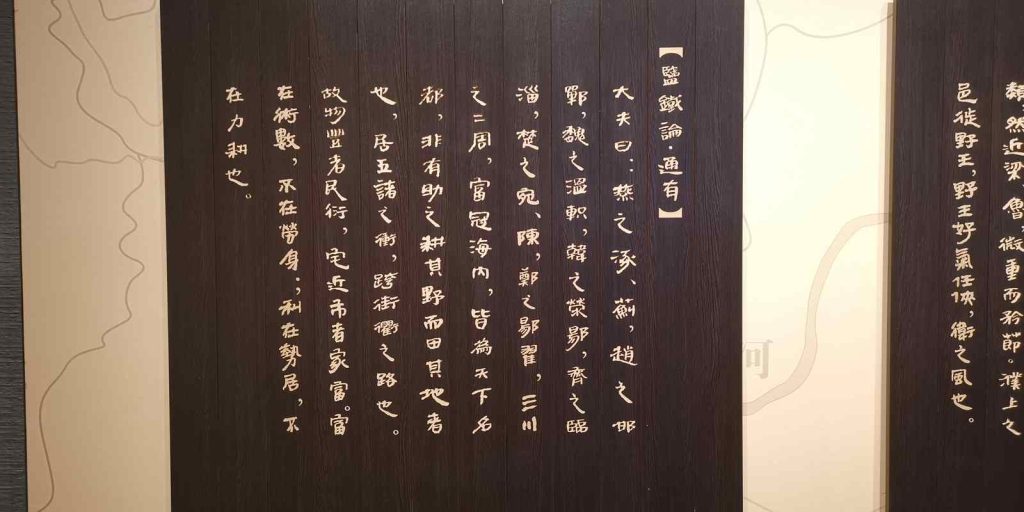 然近梁、魯，微重而矜節。濮上之
邑徙野王，野王好氣任俠，衛之風也。
【鹽鐵論·通有】
大夫曰：燕之涿、薊，趙之邯
鄲，魏之溫軹，韓之榮陽，齊之臨
淄，楚之宛、陳，鄭之陽翟，三川
之二周，富冠海內，皆為天下名
都，非有助之耕其野而田其地者
也，居五諸之衝，跨街衢之路也。
故物豐者民衍，宅近市者家富。富
在術數，不在勞身；利在勢居，不
在力耕也。
河